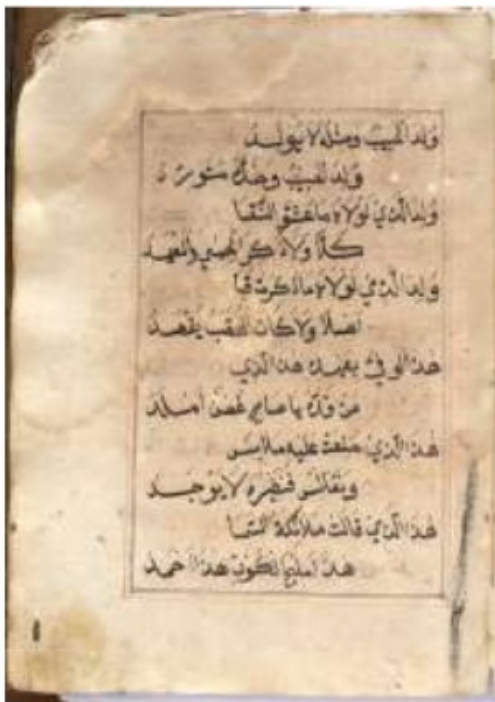 ولد الحبيب ومثله لا يولد
ولد الحبيب وخده متورد
ولد الذي لولاه ما عشق النقا
كلا ولا ذكر الحمى والمعهد
ولد الذي لولاه ما ذكرت قبا
اصلا ولا كان المحصب يقصد
هذا الوفي بعهده هذا الذي
من قده يا صاح غصن املد
هذا الذي خلعت عليه ملابس
ونفائس فنظيره لا يوجد
هذا الذي قالت ملائكة السما
هذا مليح الكون هذا احمد